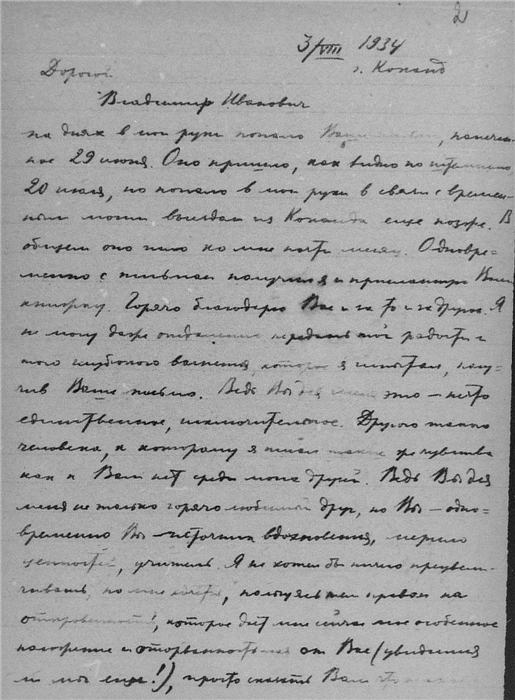 2
3/VIII 1934
г. Коканд
Дорогой
Владимир Иванович
на днях в мои руки попало Ваше, напечатан-
ное 29 июня. Оно пришло, как видно по штемпелю,
20 июля, но попало в мои руки в связи с времен-
ным моим выездом из Коканда еще позже. В
общем оно шло ко мне почти месяц. Одновре-
менно с письмом получил я и присланную Вами
книжку. Горячо благодарю Вас и за то и за другое. Я
не могу даже отдаленно передать той радости и
того глубокого волнения, которое я испытал, полу-
чив Ваше письмо. Ведь Вы для меня это – нечто
единственное, исключительное. Другого такого
человека, к которому я питал такие же чувства
как к Вам нет среди моих друзей. Ведь Вы для
меня не только горячо любимый друг, но Вы – одно-
временно Вы источник вдохновения, мерило
ценностей, учитель. Я не хотел бы ничего преувели-
чивать, но мне, пользуясь тем правом на
откровенность, которое дает мне сейчас мое особенное
положение и оторванность от Вас (увидимся
ли мы еще!), просто сказать Вам